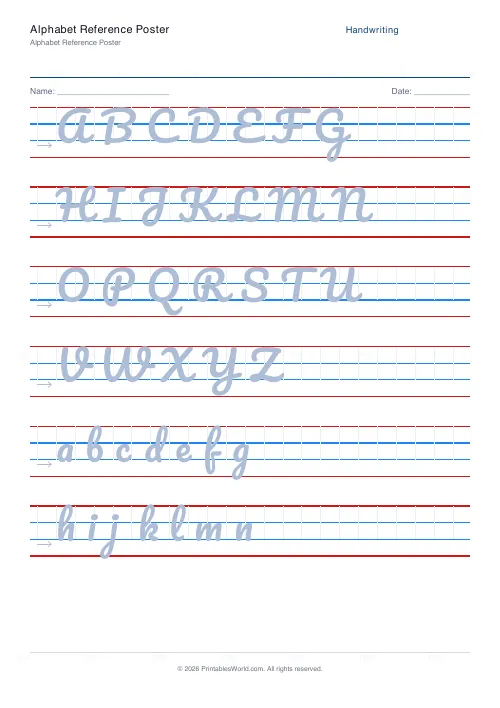 Alphabet Reference Poster
Handwriting
Alphabet Reference Poster
Name: ____________________ Date: __________
A B C D E F G
H I J K L M N
O P Q R S T U
V W X Y Z
a b c d e f g
h i j k l m n
© 2026 PrintablesWorld.com. All rights reserved.